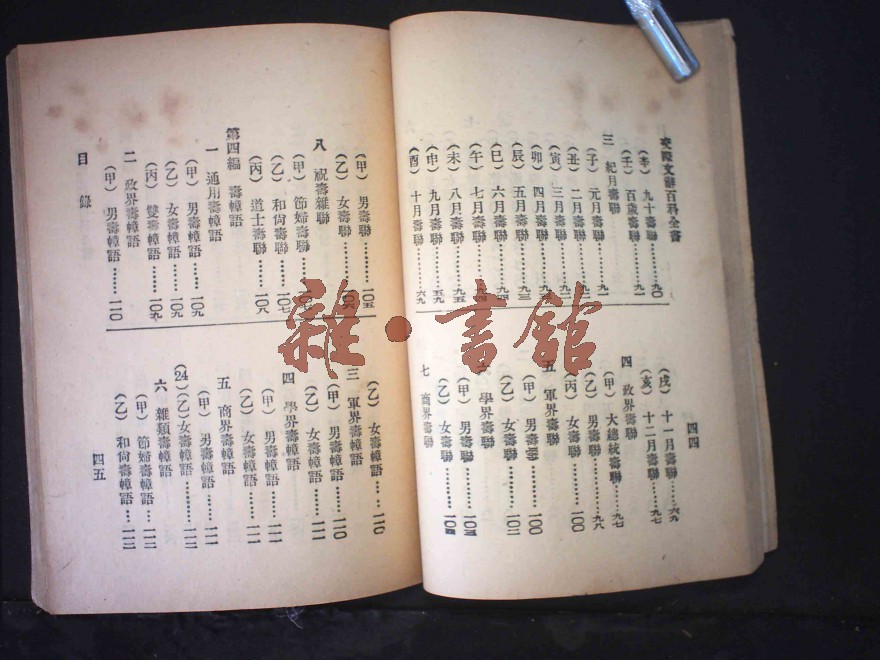 交際文辭百科全書
四四
(辛) 九十壽聯………九〇
(壬) 百歲壽聯………九一
三 紀月壽聯
(子) 元月壽聯………九一
(丑) 二月壽聯………九一
(寅) 三月壽聯………九二
(卯) 四月壽聯………九二
(辰) 五月壽聯………九三
(巳) 六月壽聯………九四
(午) 七月壽聯………九四
(未) 八月壽聯………九五
(申) 九月壽聯………五九
(酉) 十月壽聯………六九
(戌) 十一月壽聯……六九
(亥) 十二月壽聯……九七
四 政界壽聯
(甲) 大總統壽聯……九七
(乙) 男壽聯………九八
(丙) 女壽聯………一〇〇
五 軍界壽聯
(甲) 男壽聯………一〇〇
(乙) 女壽聯………一〇二
六 學界壽聯
(甲) 男壽聯………一〇三
(乙) 女壽聯………一〇四
七 商界壽聯
(甲) 男壽聯………一〇五
(乙) 女壽聯………一〇六
八 祝壽雜聯
(甲) 節婦壽聯………
(乙) 和尙壽聯………一〇七
(丙) 道士壽聯………一〇八
第四編 壽幛語
一 通用壽幛語
(甲) 男壽幛語………一〇九
(乙) 女壽幛語………一〇九
(丙) 雙壽幛語………一〇九
二 政界壽幛語
(甲) 男壽幛語………一一〇
(乙) 女壽幛語……一一〇
三 軍界壽幛語
(甲) 男壽幛語……一一〇
(乙) 女壽幛語……一一一
四 學界壽幛語
(甲) 男壽幛語……一一一
(乙) 女壽幛語……一一一
五 商界壽幛語
(甲) 男壽幛語……一一一
(24)(乙) 女壽幛語……一一二
六 雜類壽幛語
(甲) 節婦壽幛語……一一二
(乙) 和尙壽幛語……一一二
目錄
四五
雜·書館